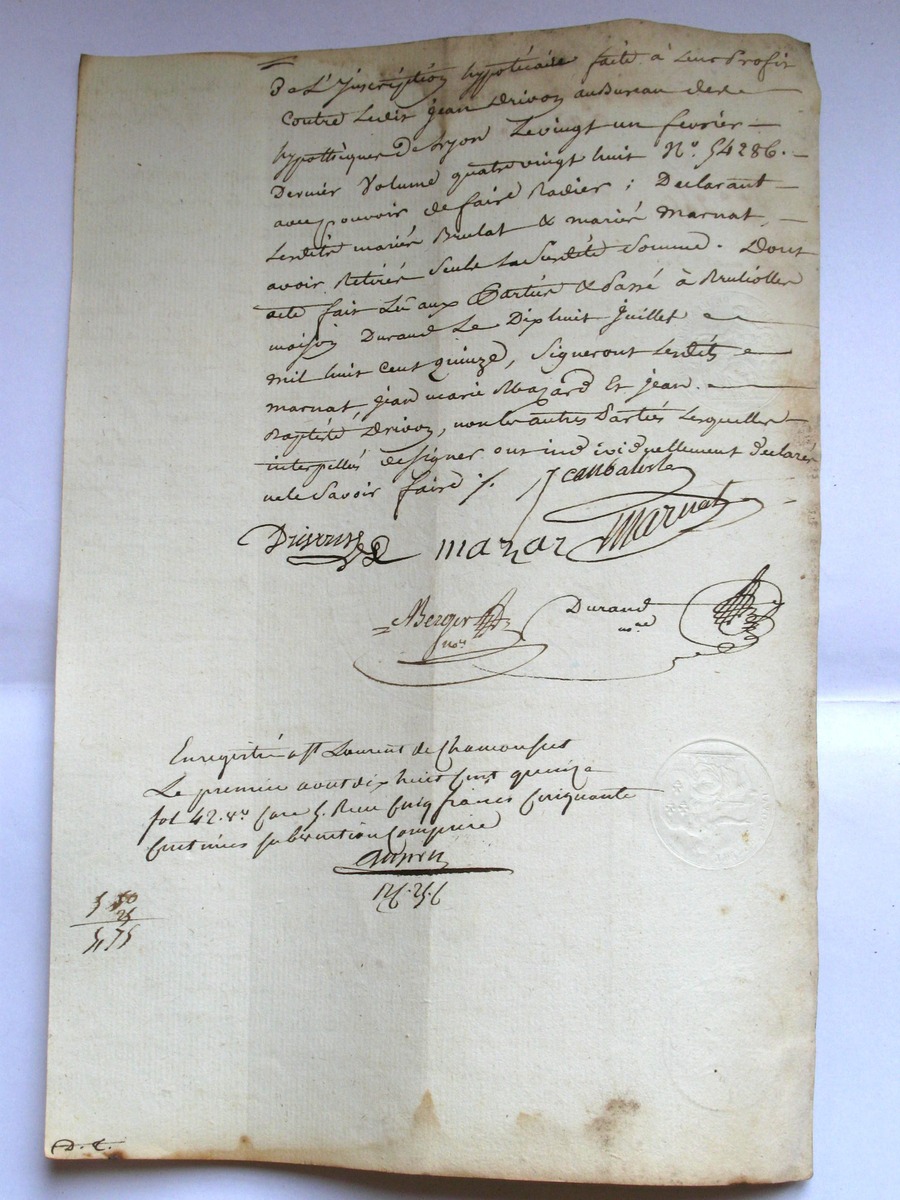 De L'Inscription hypotécaire faite à Leur Profit
Contre Ledit jean Drivon au Bureau des
hypothèques De Lyon Le vingt un fevrier
Dernier Volume quatre vingt huit N.° 54286.
avec pouvoir de faire Radier ; Declarant
Lesdits mariés Brulat & mariés Marnat
avoir Retirés Seule La Susdite Somme. Dont
acte fait Lu aux Parties & Passé à Brullioles
maison Durand Le Dix huit juillet
mil huit cent quinze, Signeront Lesdits
marnat, jean marie Mazard Et jean
Baptiste Drivon, non les autres Parties Lesquelles
interpellés de signer ont individuellement declarés
ne le Savoir faire ./.
Jean batiste
Drivon mazar Marnat
Berger Durand
no.re no.re
Enregistré a St Laurent de Chamousset
Le premier aout dix huit cent quinze
fol 42. v.o case 5. Reçu cinq francs cinquante
centimes subvention comprise
5 50
25
5,75
D. C.